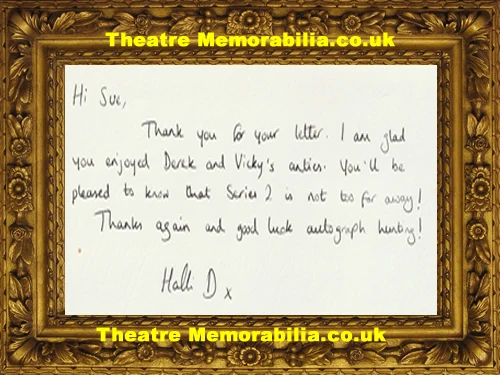 Theatre Memorabilia.co.uk
Hi Sue,
Thank you for your letter. I am glad
you enjoyed Derek and Vicky's antics. You'll be
pleased to know that Series 2 is not too far away!
Thanks again and good luck autograph hunting!
D x
Theatre Memorabilia.co.uk